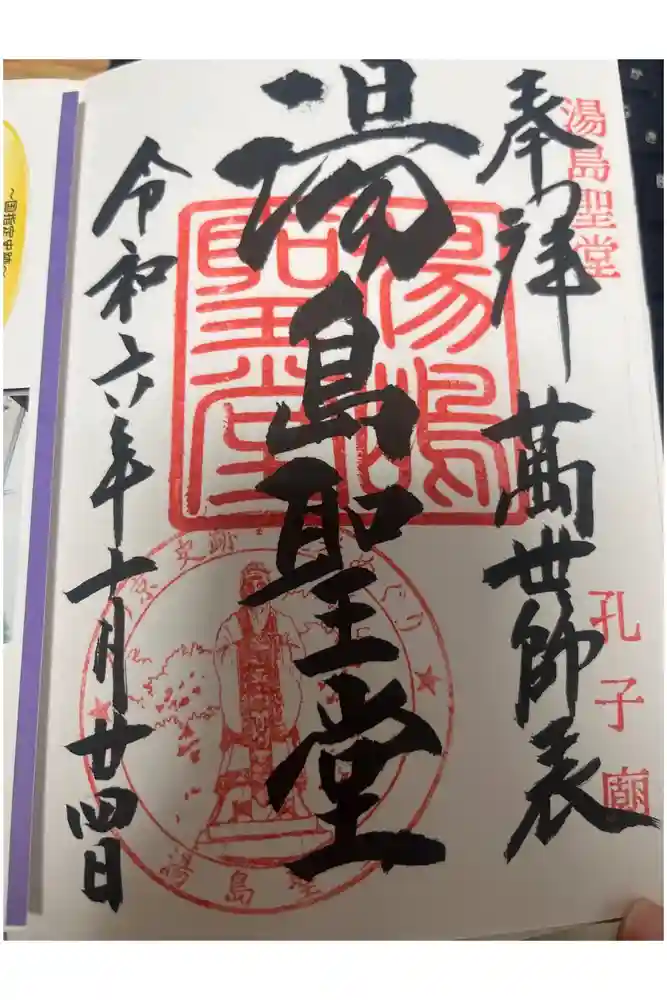 湯島聖堂
奉拝 萬世師表
孔子廟
湯島聖堂
湯島聖堂
令和六年十月廿四日
史跡
湯島聖堂
~国指定史跡~